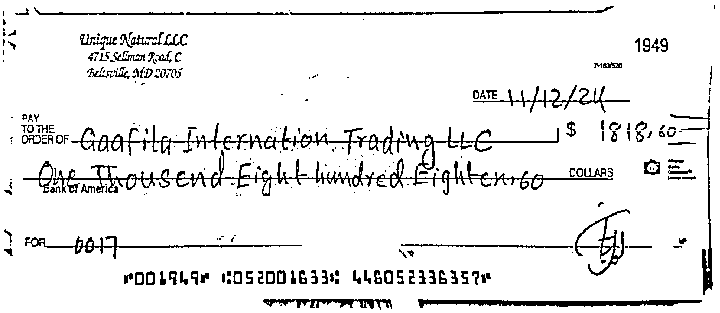 Unique Natural LLC
4715 Sellman Road, C
Beltsville, MD 20705
1949
DATE 11/12/24
PAY
TO THE
ORDER OF Gaafila Internation Trading LLC $ 1818.60
One Thousend Eight hundred Eighten.60 DOLLARS
Bank of America
FOR 0017
⑈001949⑈ ⑆052001633⑆ 446052336357⑈